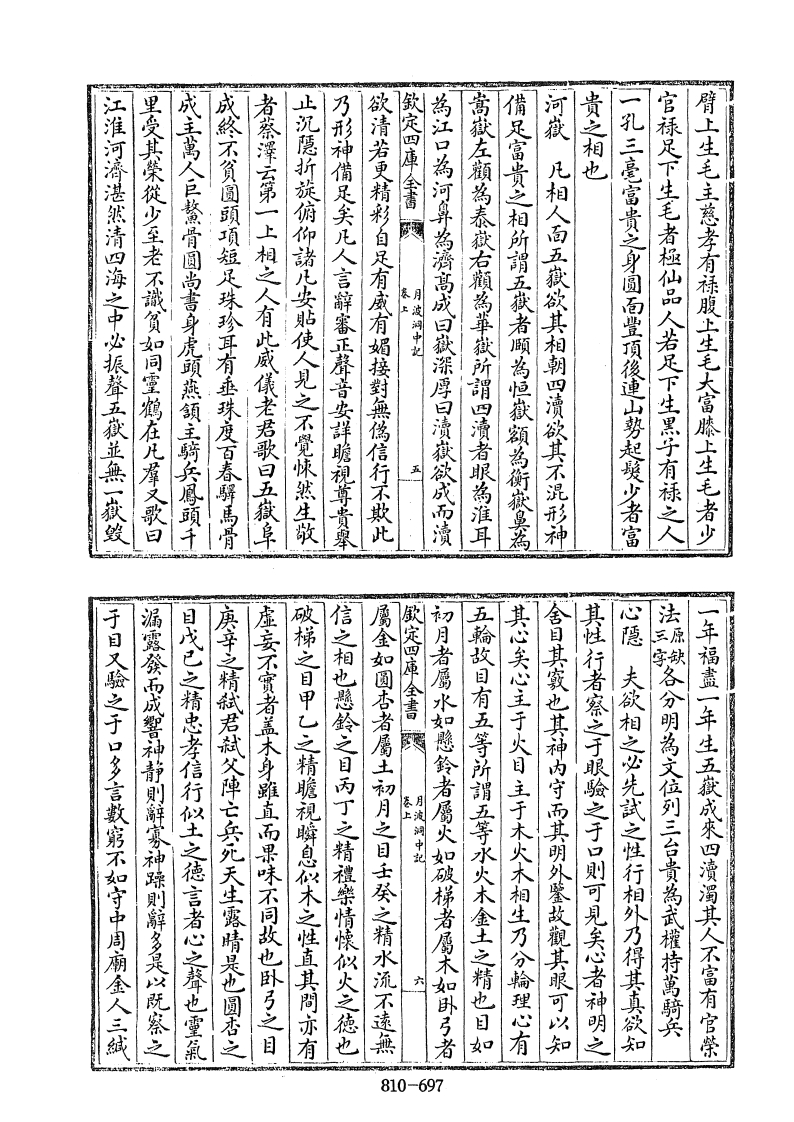 臂上生毛主慈孝有祿腹上生毛大富膝上生毛者少
官祿足下生毛者極仙品人若足下生黒子有祿之人
一孔三毫富貴之身圓面豐頂後連山勢起髮少者富
貴之相也
河嶽　凡相人面五嶽欲其相朝四瀆欲其不混形神
備足富貴之相所謂五嶽者頤為恒嶽額為衡嶽鼻為
嵩嶽左顴為泰嶽右顴為華嶽所謂四瀆者眼為淮耳
為江口為河鼻為濟髙成曰嶽深厚曰瀆嶽欲成而瀆
欽定四庫全書
月波洞中記
卷上
五
欲清若更精彩自足有威有媚接對無偽信行不欺此
乃形神備足矣凡人言辭審正聲音安詳瞻視尊貴舉
止沉隱折旋俯仰諸凡安貼使人見之不覺悚然生敬
者蔡澤云第一上相之人有此威儀老君歌曰五嶽阜
成終不貧圓頭項短足珠珍耳有垂珠度百春驛馬骨
成主萬人巨鰲骨圓尚書身虎頭燕頷主騎兵鳳頭千
里受其榮從少至老不識貧如同靈鶴在凡羣又歌曰
江淮河濟湛然清四海之中必振聲五嶽並無一嶽毀
一年福盡一年生五嶽成來四瀆濁其人不富有官榮
法原缺三字各分明為文位列三台貴為武權持萬騎兵
心隱　夫欲相之必先試之性行相外乃得其真欲知
其性行者察之于眼驗之于口則可見矣心者神明之
舍目其竅也其神内守而其明外鑒故觀其眼可以知
其心矣心主于火目主于木火木相生乃分輪理心有
五輪故目有五等所謂五等水火木金土之精也目如
初月者屬水如懸鈴者屬火如破梯者屬木如卧弓者
欽定四庫全書
月波洞中記
卷上
六
屬金如圓杏者屬土初月之目壬癸之精水流不遠無
信之相也懸鈴之目丙丁之精禮樂情懷似火之德也
破梯之目甲乙之精瞻視瞬息似木之性直其間亦有
虛妄不實者盖木身雖直而果味不同故也卧弓之目
庚辛之精弑君弑父陣亡兵死天生露睛是也圓杏之
目戊巳之精忠孝信行似土之德言者心之聲也靈氣
漏露發而成響神静則辭寡神躁則辭多是以既察之
于目又驗之于口多言數窮不如守中周廟金人三緘
810-697